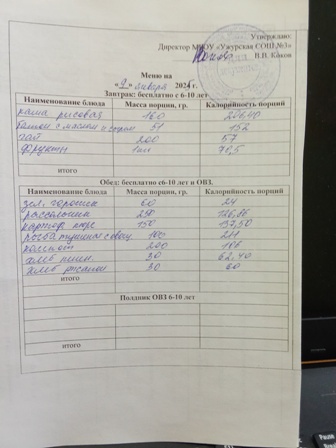 Утверждаю:
Директор МБОУ «Ужурская СОШ №3»
В.П. Коков
Меню на
«9» января 2025 г.
Завтрак: бесплатно с 6-10 лет
Наименование блюда Масса порции, гр. Калорийность порций
каша рисовая 160 206,40
батон с маслом и сыром 51 152
чай 200 57
фрукты 1шт 70,5
итого
Обед: бесплатно с6-10 лет и ОВЗ.
Наименование блюда Масса порции, гр. Калорийность порций
зел. горошек 60 24
рассольник 250
картоф. пюре 150 137,50
рыба тушеная с овощ. 100 211
компот 200 186
хлеб пшен. 30 62,40
хлеб ржаной 30 60
итого
Полдник ОВЗ 6-10 лет
итого